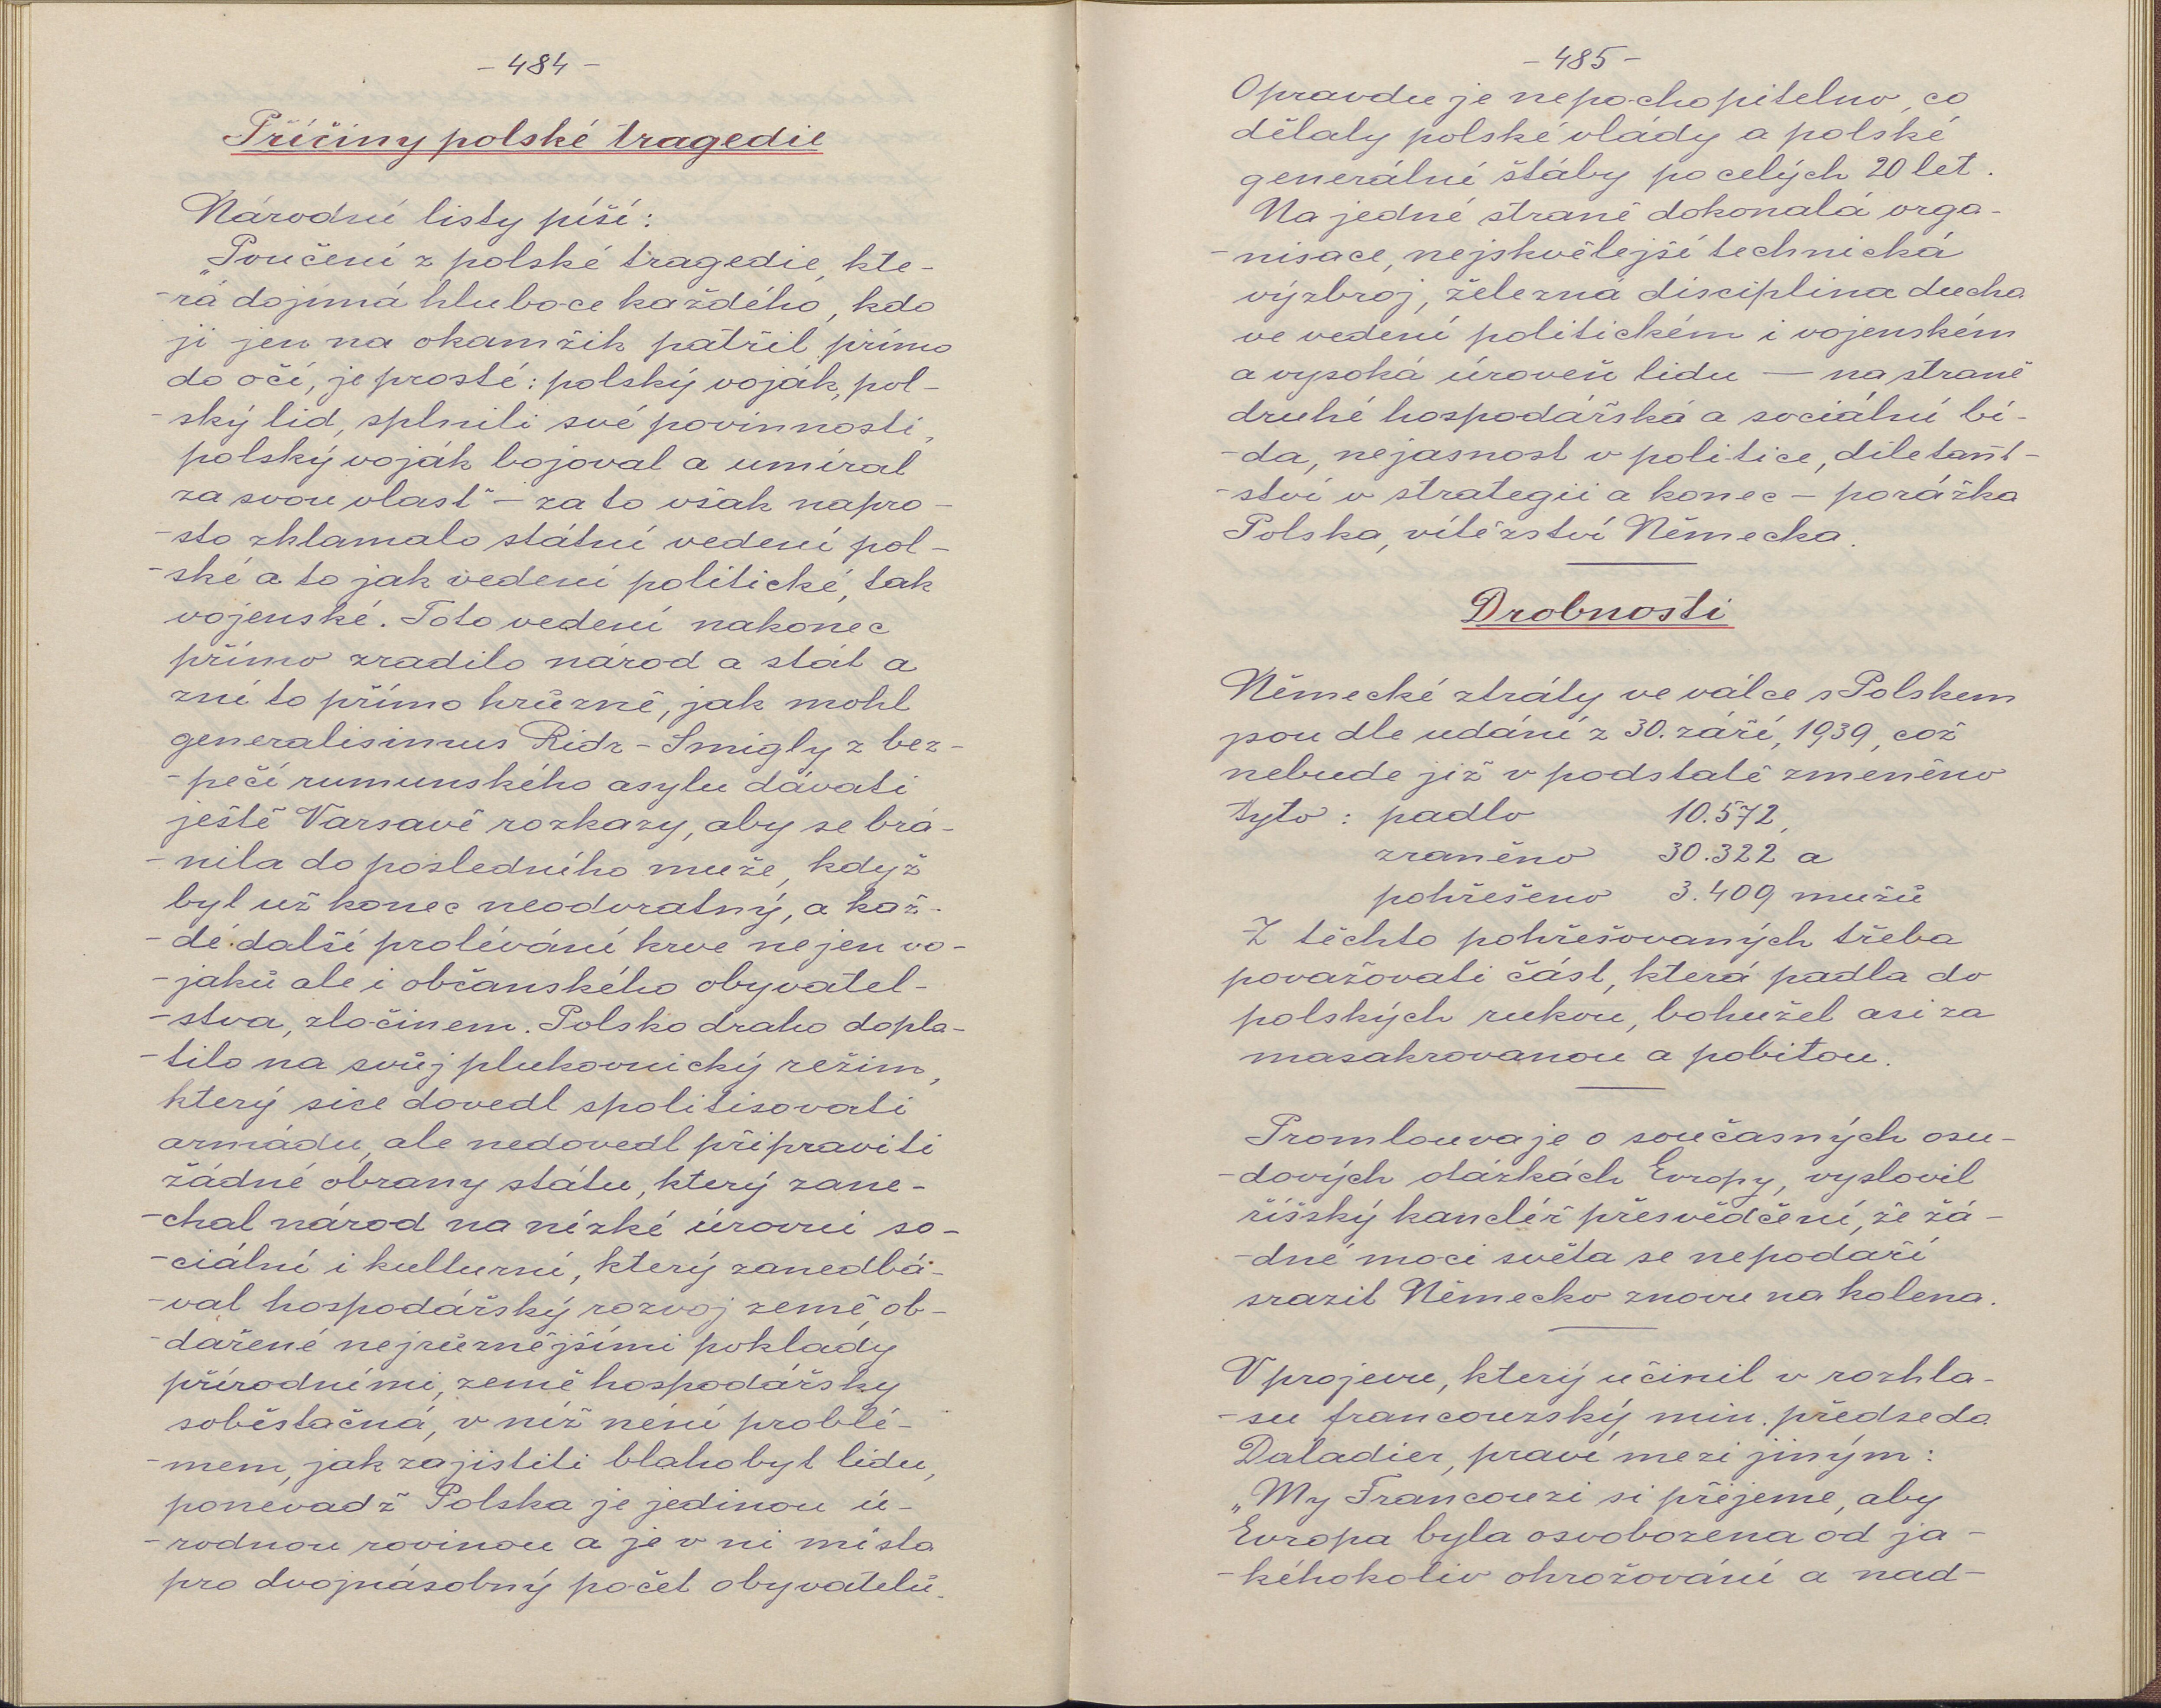 - 484 -
Příčiny polské tragedie
Národní listy píší:
„Poučení z polské tragedie, kte-
-rá dojímá hluboce každého, kdo
jí jen na okamžik patřil přímo
do očí, je prosté: polský voják, pol-
-ský lid, splnili své povinnosti,
polský voják bojoval a umíral
za svou vlast" - za to však napro-
-sto zklamalo státní vedení pol-
-ské a to jak vedení politické, tak
vojenské. Toto vedení nakonec
přímo zradilo národ a stát a
zní to přímo hrůzně, jak mohl
generalisimus Ridz-Smigly z bez-
-pečí rumunského asylu dávati
ještě Varšavě rozkazy, aby se brá-
-nila do posledního muže, když
byl už konec neodvratný, a kaž-
-dé další prolévání krve nejen vo-
-jaků ale i občanského obyvatel-
-stva, zločinem. Polsko draho dopla-
-tilo na svůj plukovnický režim,
který sice dovedl spolitisovati
armádu, ale nedovedl připraviti
žádné obrany státu, který zane-
-chal národ na nízké úrovni so-
-ciální i kulturní, který zanedbá-
-val hospodářský rozvoj země, ob-
-dařené nejrůznějšími poklady
přírodními, země hospodářsky
soběstačná, v níž není problé-
-mem, jak zajistiti blahobyt lidu,
poněvadž Polska je jedinou ú-
-rodnou rovinou a je v ní místa
pro dvojnásobný počet obyvatelů.
- 485 -
Opravdu je nepochopitelno, co
dělaly polské vlády a polské
generální štáby po celých 20 let.
Na jedné straně dokonalá orga-
-nisace, nejskvělejší technická
výzbroj, železná disciplina ducha
ve vedení politickém i vojenském
a vysoká úroveň lidu — na straně
druhé hospodářská a sociální bí-
-da, nejasnost v politice, diletant-
-ství v strategii a konec - porážka
Polska, vítězství Německa.
Drobnosti
Německé ztráty ve válce s Polskem
jsou dle udání z 30. září, 1939, což
nebude již v podstatě změněno
tyto: padlo 10.572,
zraněno 30.322 a
pohřešeno 3.409 mužů
Z těchto pohřešovaných třeba
považovati část, která padla do
polských rukou, bohužel asi za
masakrovanou a pobitou.
Promlouvaje o současných osu-
-dových otázkách Evropy, vyslovil
říšský kancléř přesvědčení, že žá-
-dné moci světa se nepodaří
srazit Německo znovu na kolena.
V projevu, který učinil v rozhla-
-su francouzský min. předseda
Daladier, praví mezi jiným:
„My Francouzi si přejeme, aby
Evropa byla osvobozena od ja-
-kéhokoliv ohrožování a nad-